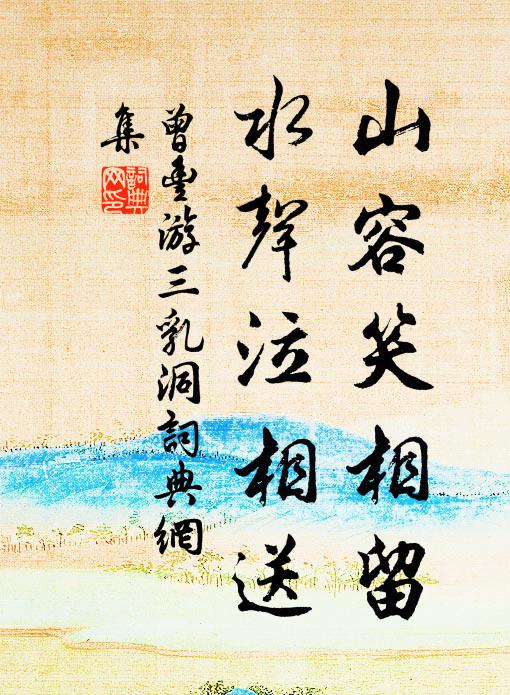 山容笑相留
水聲泣相送
曾豊游三乳洞詞典網
集
詞典
网印